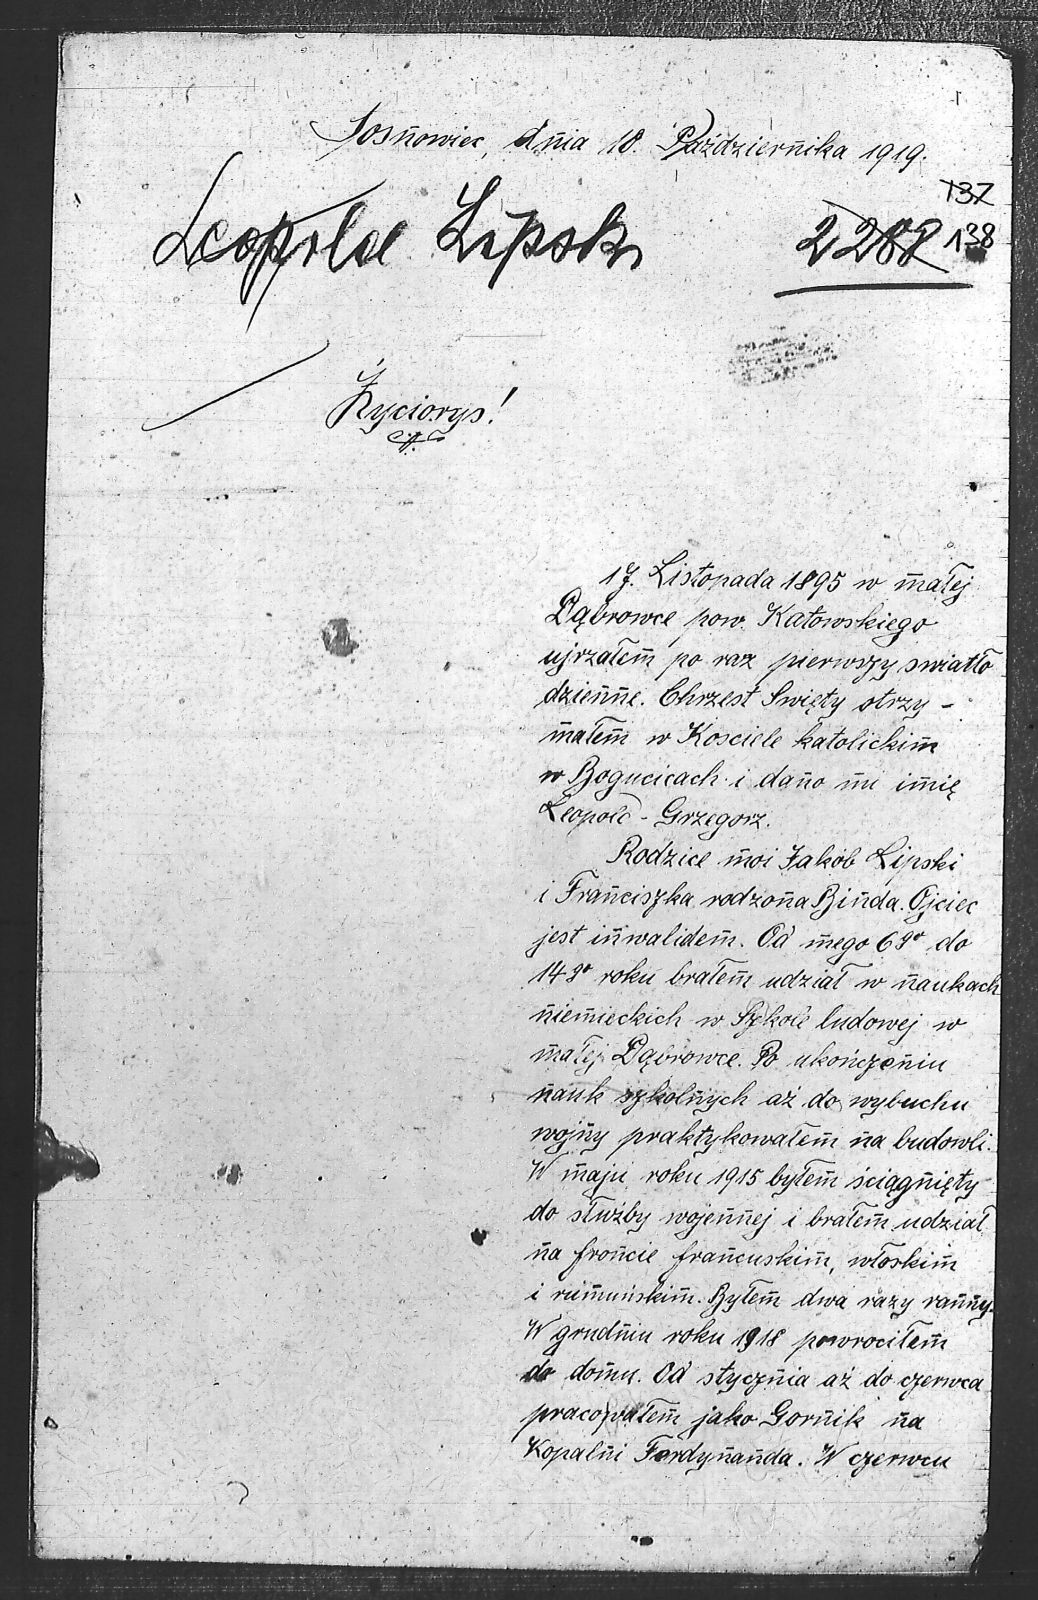 Sosnowiec, dnia 18. Października 1919.
137
Leopold Lipski 2288 138
Życiorys!
17. Listopada 1895 w małej
Dąbrowce pow. Katowskiego
ujrzałem po raz pierwszy swiatło
dzienne. Chrzest Swięty otrzy-
małem w Kosciele katolickim
w Bogucicach i dano mi imię
Leopold - Grzegorz.
Rodzice moi Jakob Lipski
i Franciszka rodzona Binda. Ojciec
jest inwalidem. Od mego 6go do
14go roku brałem udział w naukach
niemieckich w Szkole ludowej w
małej Dąbrowce. Po ukończeniu
nauk szkolnych aż do wybuchu
wojny praktykowałem na budowli.
W maju roku 1915 byłem ściągnięty
do służby wojennej i brałem udział
na froncie francuskim, włoskim
i rumuńskim. Byłem dwa razy ranny.
W grudniu roku 1918 powrociłem
do domu. Od stycznia aż do czerwca
pracowałem jako Gornik na
Kopalni Ferdynanda. W czerwcu